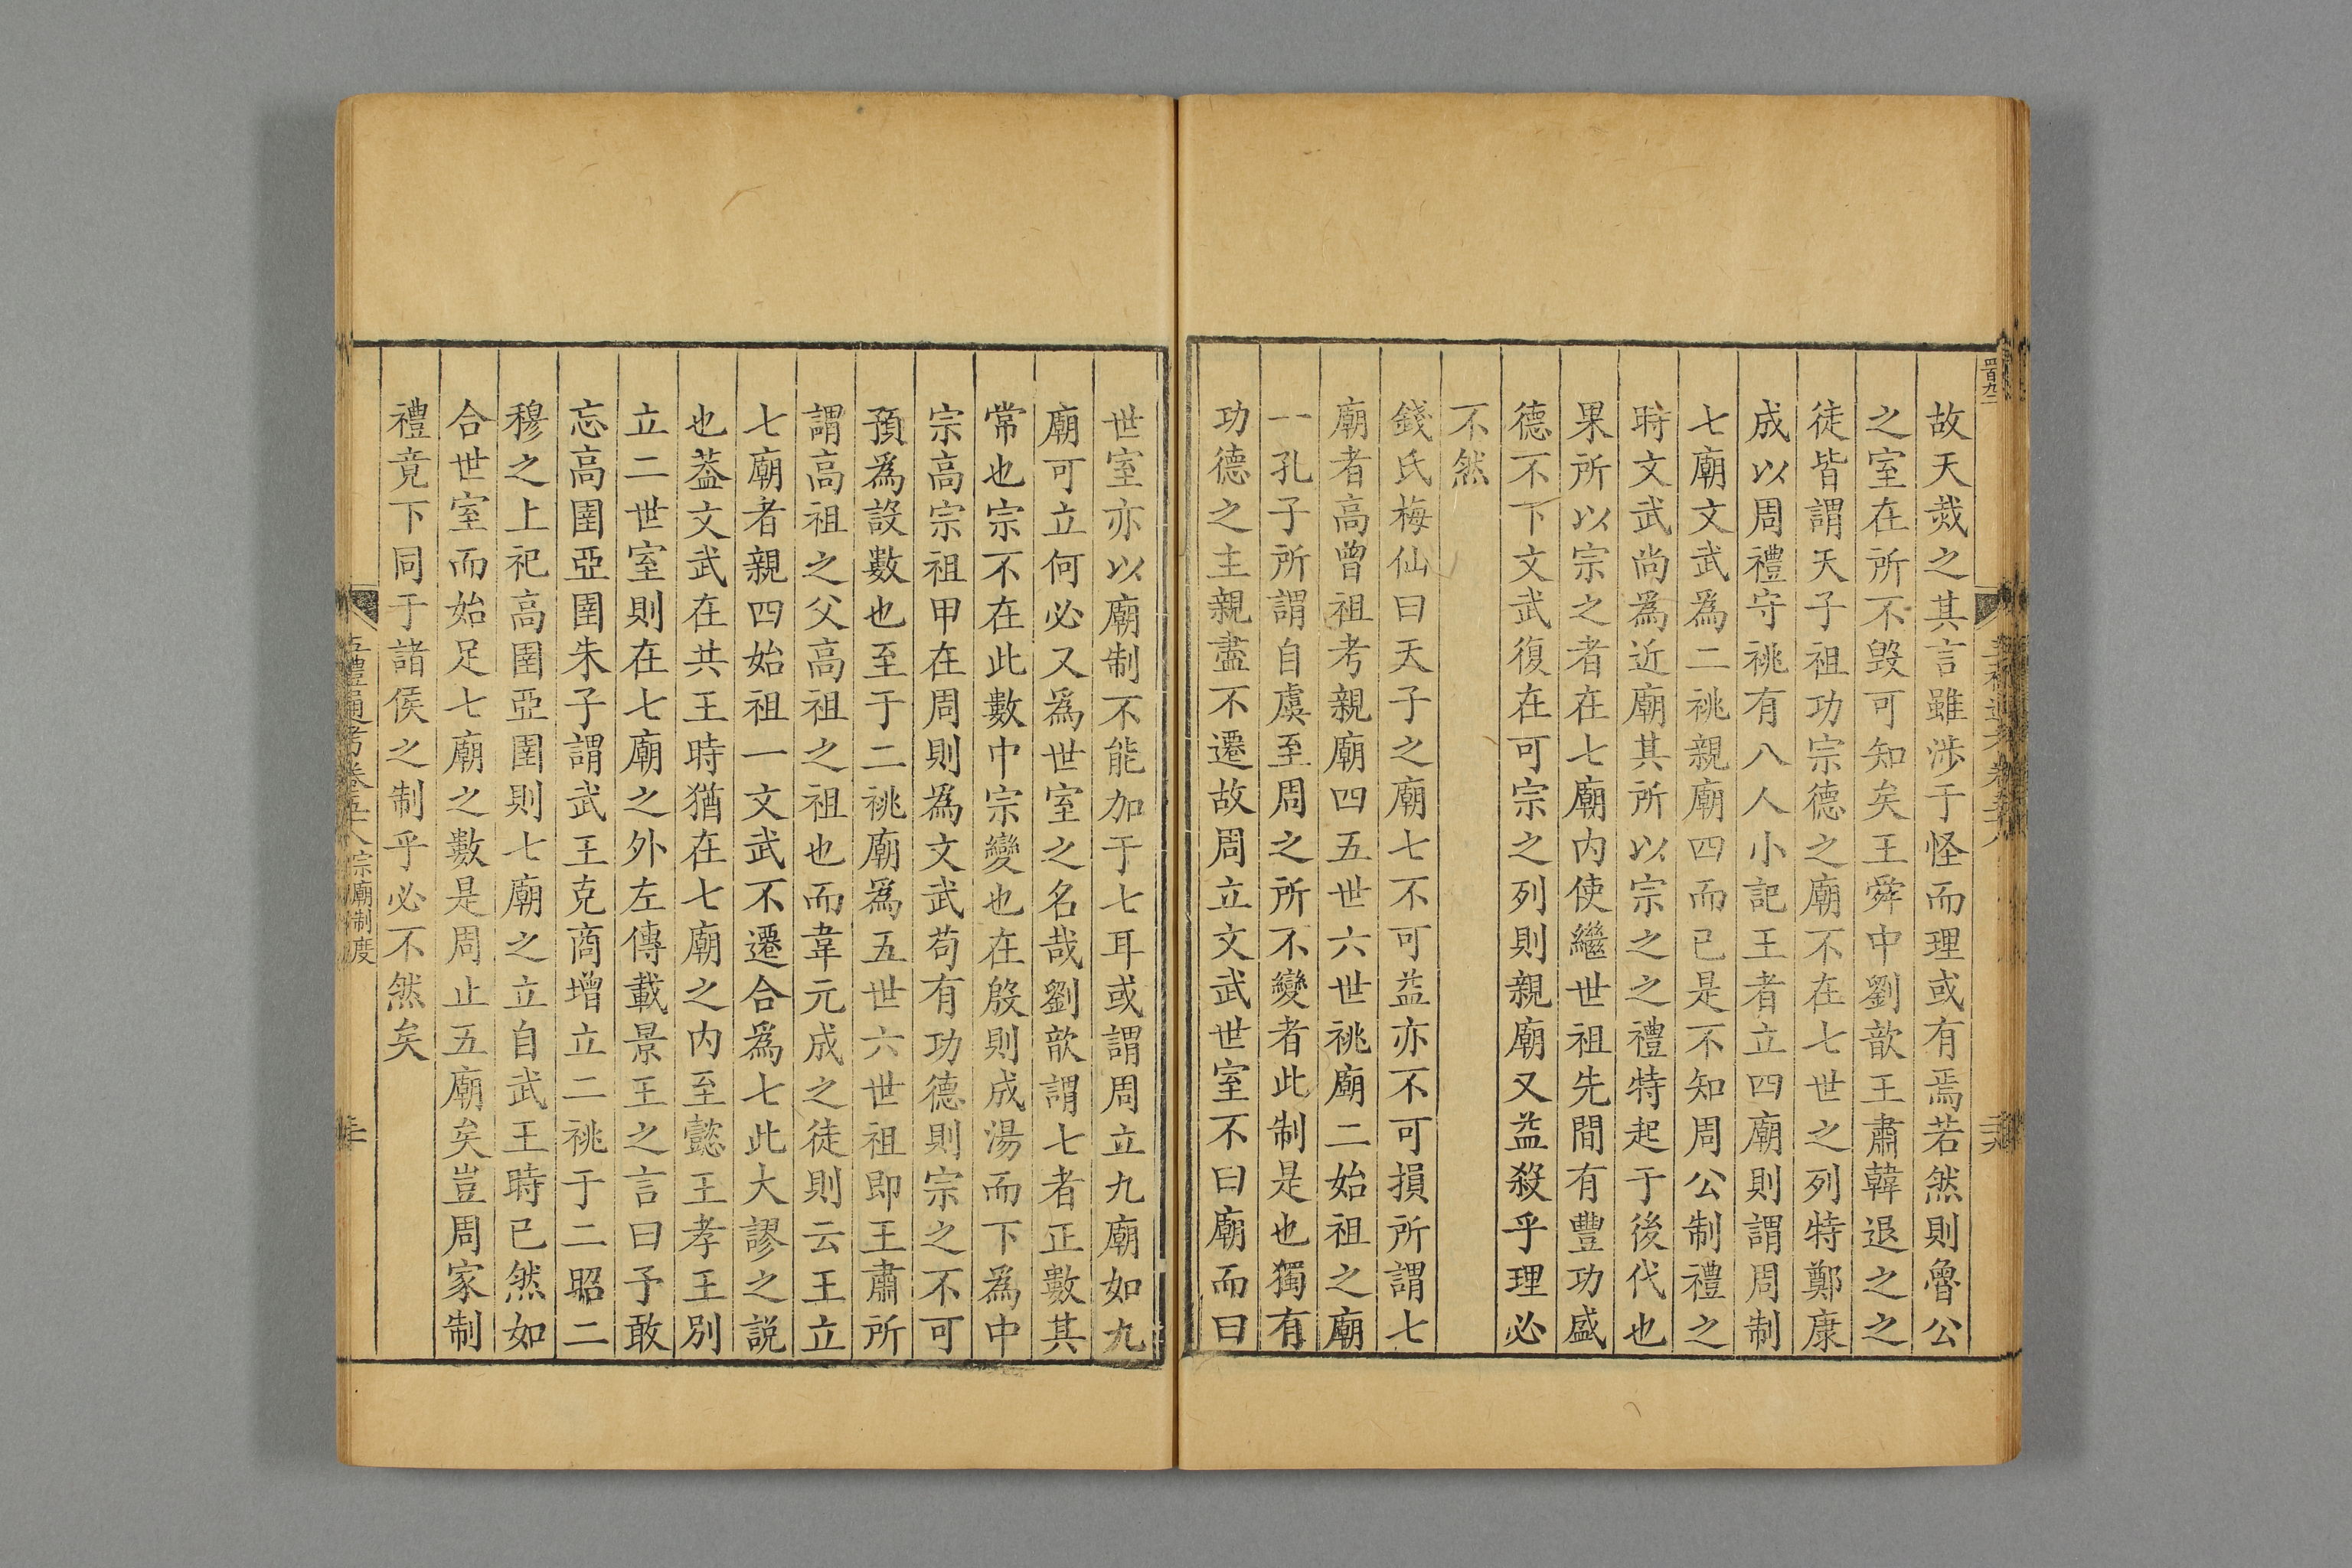 故天烖之其言雖涉于怪而理或有焉若然則魯公
之室在所不毀可知矣王舜中劉歆王肅韓退之之
徒皆謂天子祖功宗德之廟不在七世之列特鄭康
成以周禮守祧有八人小記王者立四廟則謂周制
七廟文武爲二祧親廟四而已是不知周公制禮之
時文武尚爲近廟其所以宗之之禮特起于後代也
果所以宗之者在七廟内使繼世祖先間有豐功盛
德不下文武復在可宗之列則親廟又益殺乎理必
不然
錢氏梅仙曰天子之廟七不可益亦不可損所謂七
廟者高曾祖考親廟四五世六世祧廟二始祖之廟
一孔子所謂自虞至周之所不變者此制是也獨有
功德之主親盡不遷故周立文武世室不曰廟而曰
世室亦以廟制不能加于七耳或謂周立九廟如九
廟可立何必又爲世室之名哉劉歆謂七者正數其
常也宗不在此數中宗變也在殷則成湯而下爲中
宗高宗祖甲在周則爲文武苟有功德則宗之不可
預爲設數也至于二祧廟爲五世六世祖即王肅所
謂高祖之父高祖之祖也而韋元成之徒則云王立
七廟者親四始祖一文武不遷合爲七此大謬之説
也葢文武在共王時猶在七廟之内至懿王孝王別
立二世室則在七廟之外左傳載景王之言曰予敢
忘高圉亞圉朱子謂武王克商增立二祧于二昭二
穆之上祀高圉亞圉則七廟之立自武王時已然如
合世室而始足七廟之數是周止五廟矣豈周家制
禮竟下同于諸侯之制乎必不然矣
五禮通考卷五十八 宗廟制度